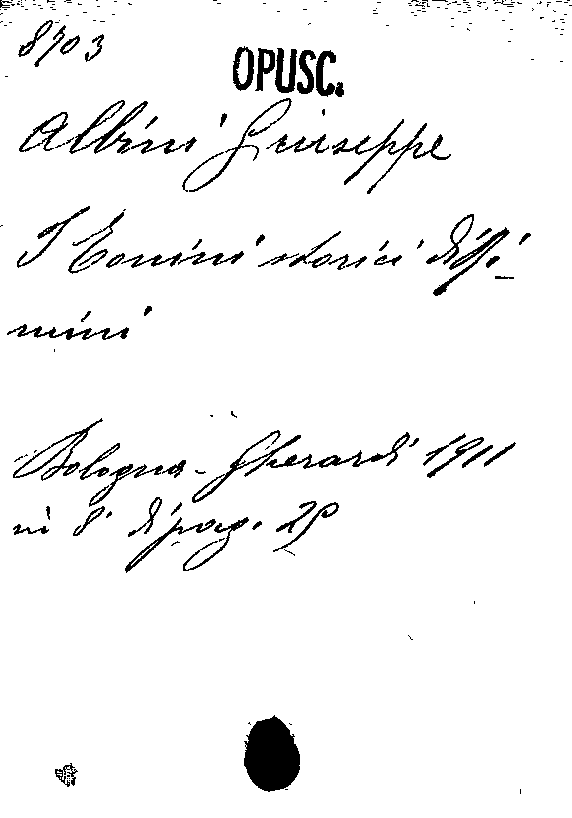 8703
OPUSC.
Albini Giuseppe
I Tonini storici di Ri-
mini
Bologna - Gherardi 1911
in 8° di pag. 29